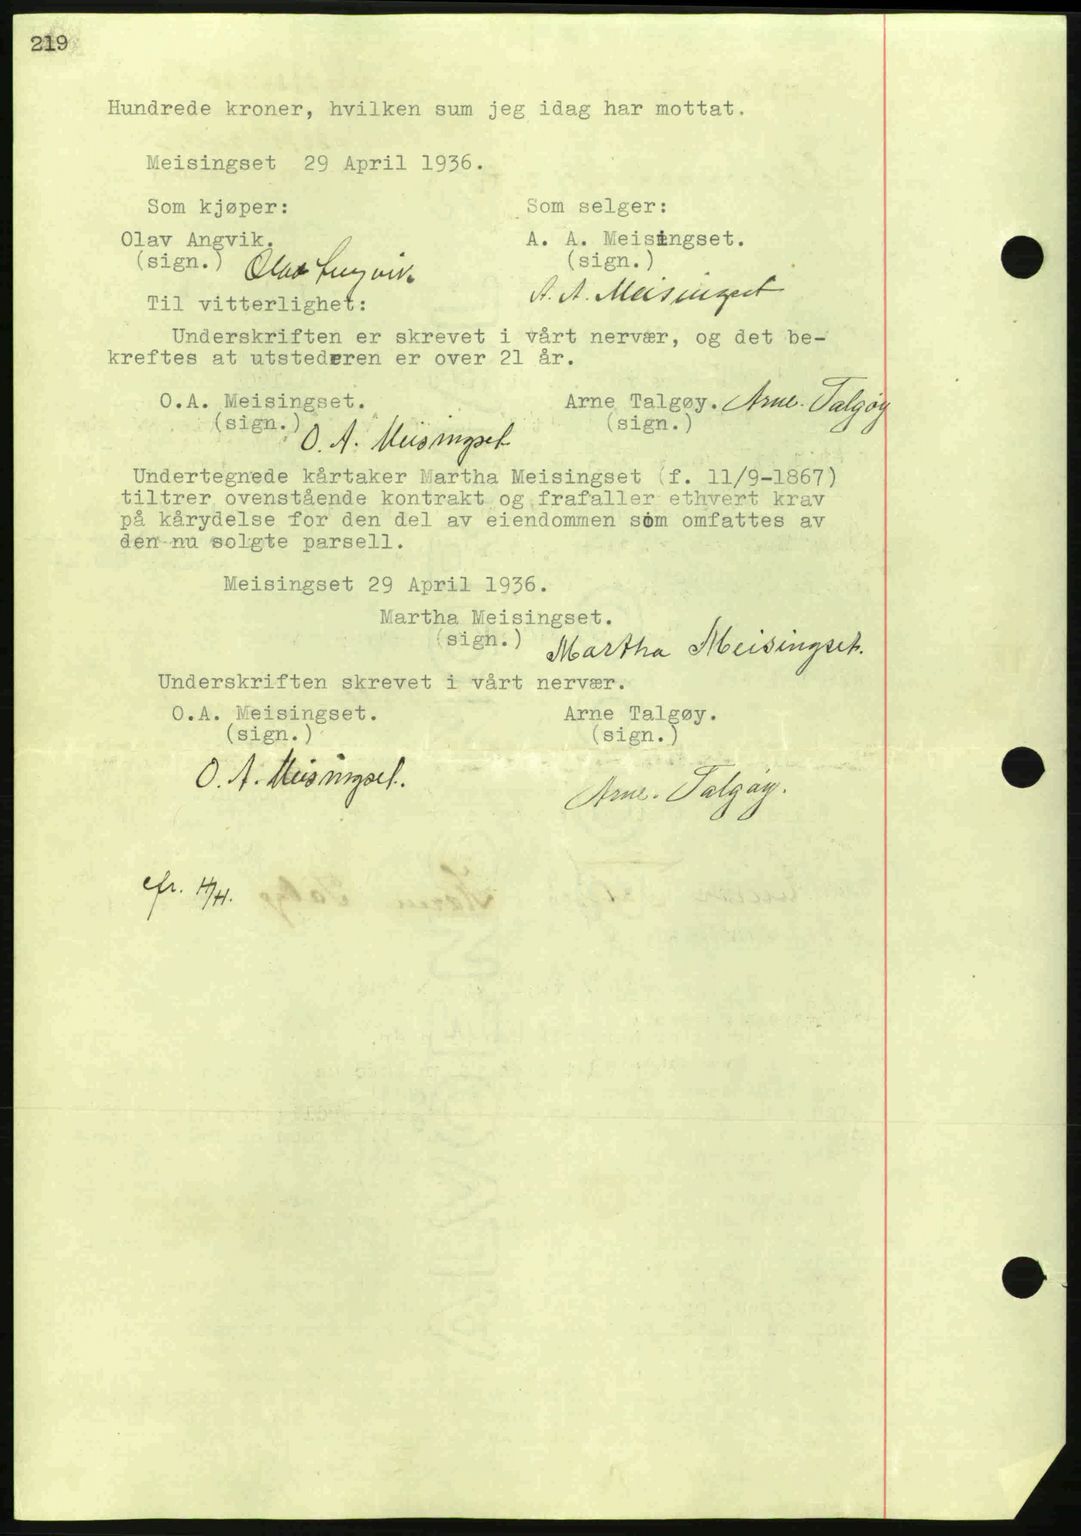 219
Hundrede kroner, hvilken sum jeg idag har mottat.
Meisingset 29 April 1936.
Som kjøper: Som selger:
Olav Angvik. A. A. Meisingset.
(sign.) Olav Angvik (sign.)
A. A. Meisingset
Til vitterlighet:
Underskriften er skrevet i vårt nervær, og det be-
kreftes at utstederen er over 21 år.
O.A. Meisingset. Arne Talgøy. Arne Talgøy
(sign.) O. A. Meisingset (sign.)
Undertegnede kårtaker Martha Meisingset (f. 11/9-1867)
tiltrer ovenstående kontrakt og frafaller ethvert krav
på kårydelse for den del av eiendommen som omfattes av
den nu solgte parsell.
Meisingset 29 April 1936.
Martha Meisingset.
(sign.) Martha Meisingset.
Underskriften skrevet i vårt nervær.
O.A. Meisingset. Arne Talgøy.
(sign.) (sign.)
O. A. Meisingset. Arne Talgøy.
cfr. H/H.